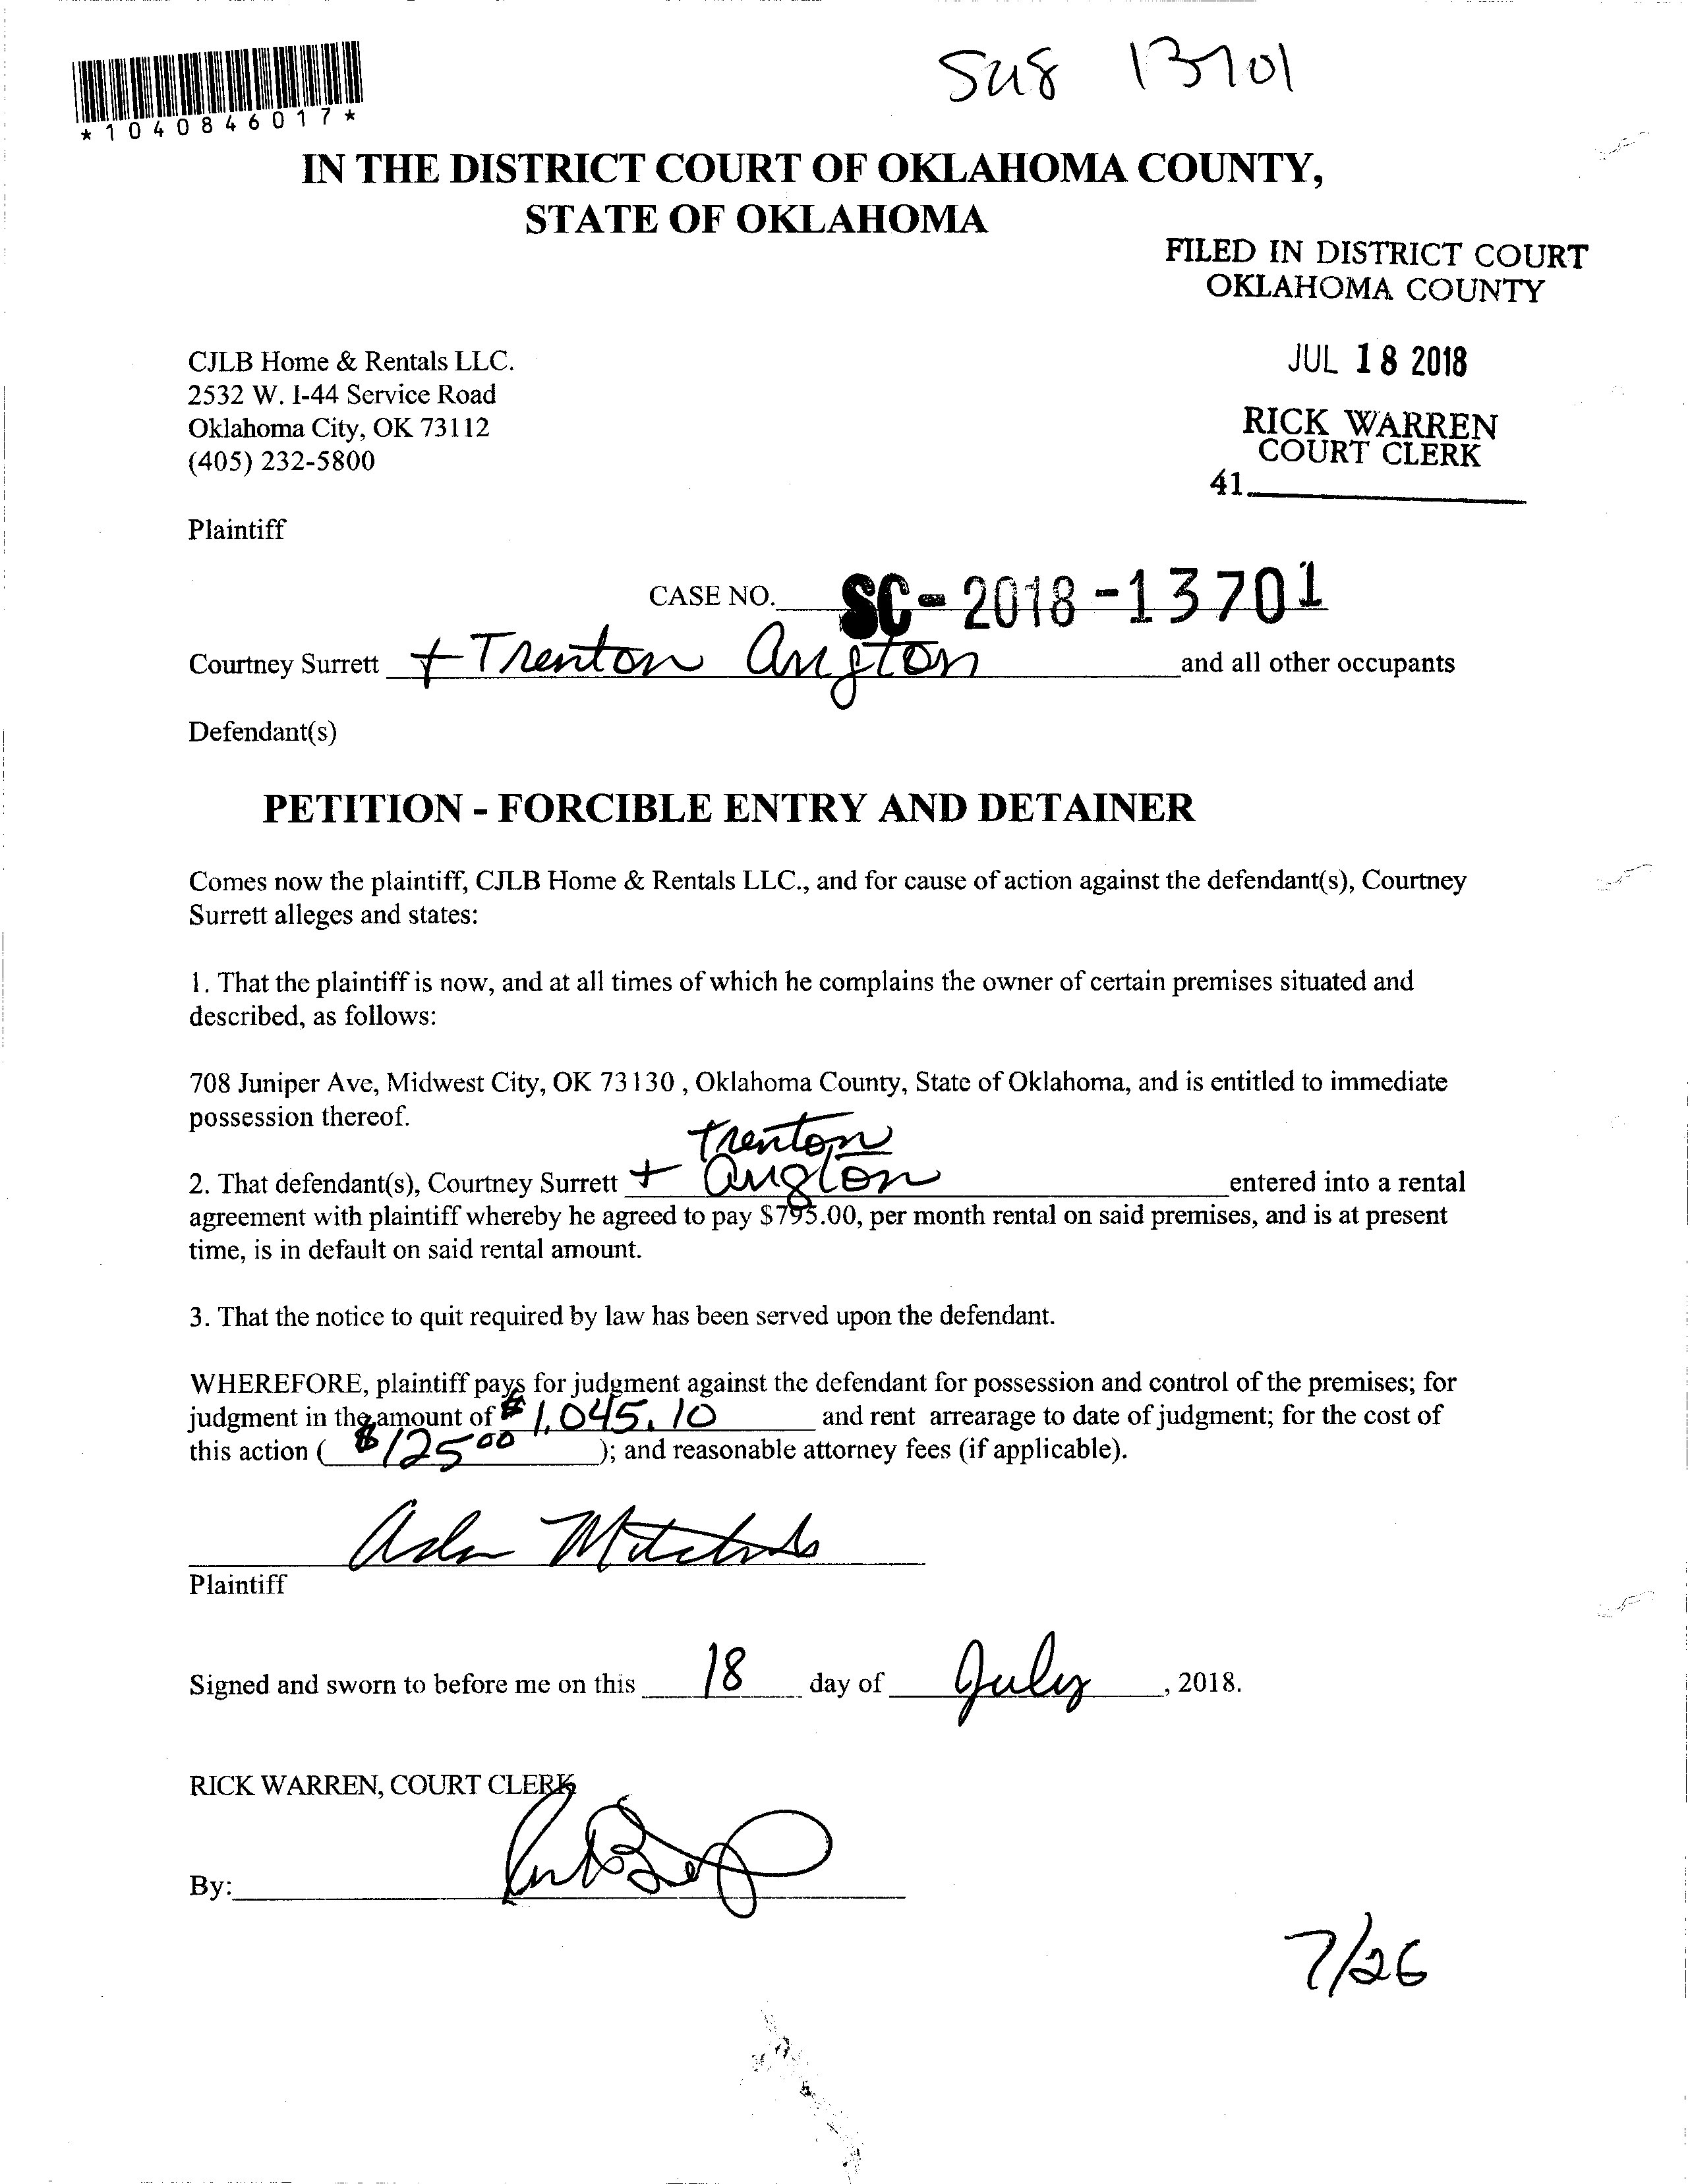 13701
*1040846017*
IN THE DISTRICT COURT OF OKLAHOMA COUNTY,
STATE OF OKLAHOMA
FILED IN DISTRICT COURT
OKLAHOMA COUNTY
JUL 18 2018
RICK WARREN
COURT CLERK
41
CJLB Home & Rentals LLC.
2532 W. I-44 Service Road
Oklahoma City, OK 73112
(405) 232-5800
Plaintiff
CASE NO. SC-2018-13701
Courtney Surrett + Trenton and all other occupants
Defendant(s)
PETITION - FORCIBLE ENTRY AND DETAINER
Comes now the plaintiff, CJLB Home & Rentals LLC., and for cause of action against the defendant(s), Courtney
Surrett alleges and states:
1. That the plaintiff is now, and at all times of which he complains the owner of certain premises situated and
described, as follows:
708 Juniper Ave, Midwest City, OK 73130 , Oklahoma County, State of Oklahoma, and is entitled to immediate
possession thereof.
Trenton
2. That defendant(s), Courtney Surrett + entered into a rental
agreement with plaintiff whereby he agreed to pay $795.00, per month rental on said premises, and is at present
time, is in default on said rental amount.
3. That the notice to quit required by law has been served upon the defendant.
WHEREFORE, plaintiff pays for judgment against the defendant for possession and control of the premises; for
judgment in the amount of $1,045.10 and rent arrearage to date of judgment; for the cost of
this action ( $125 00 ); and reasonable attorney fees (if applicable).
Plaintiff
Signed and sworn to before me on this 18 day of July , 2018.
RICK WARREN, COURT CLERK
By:
7/26